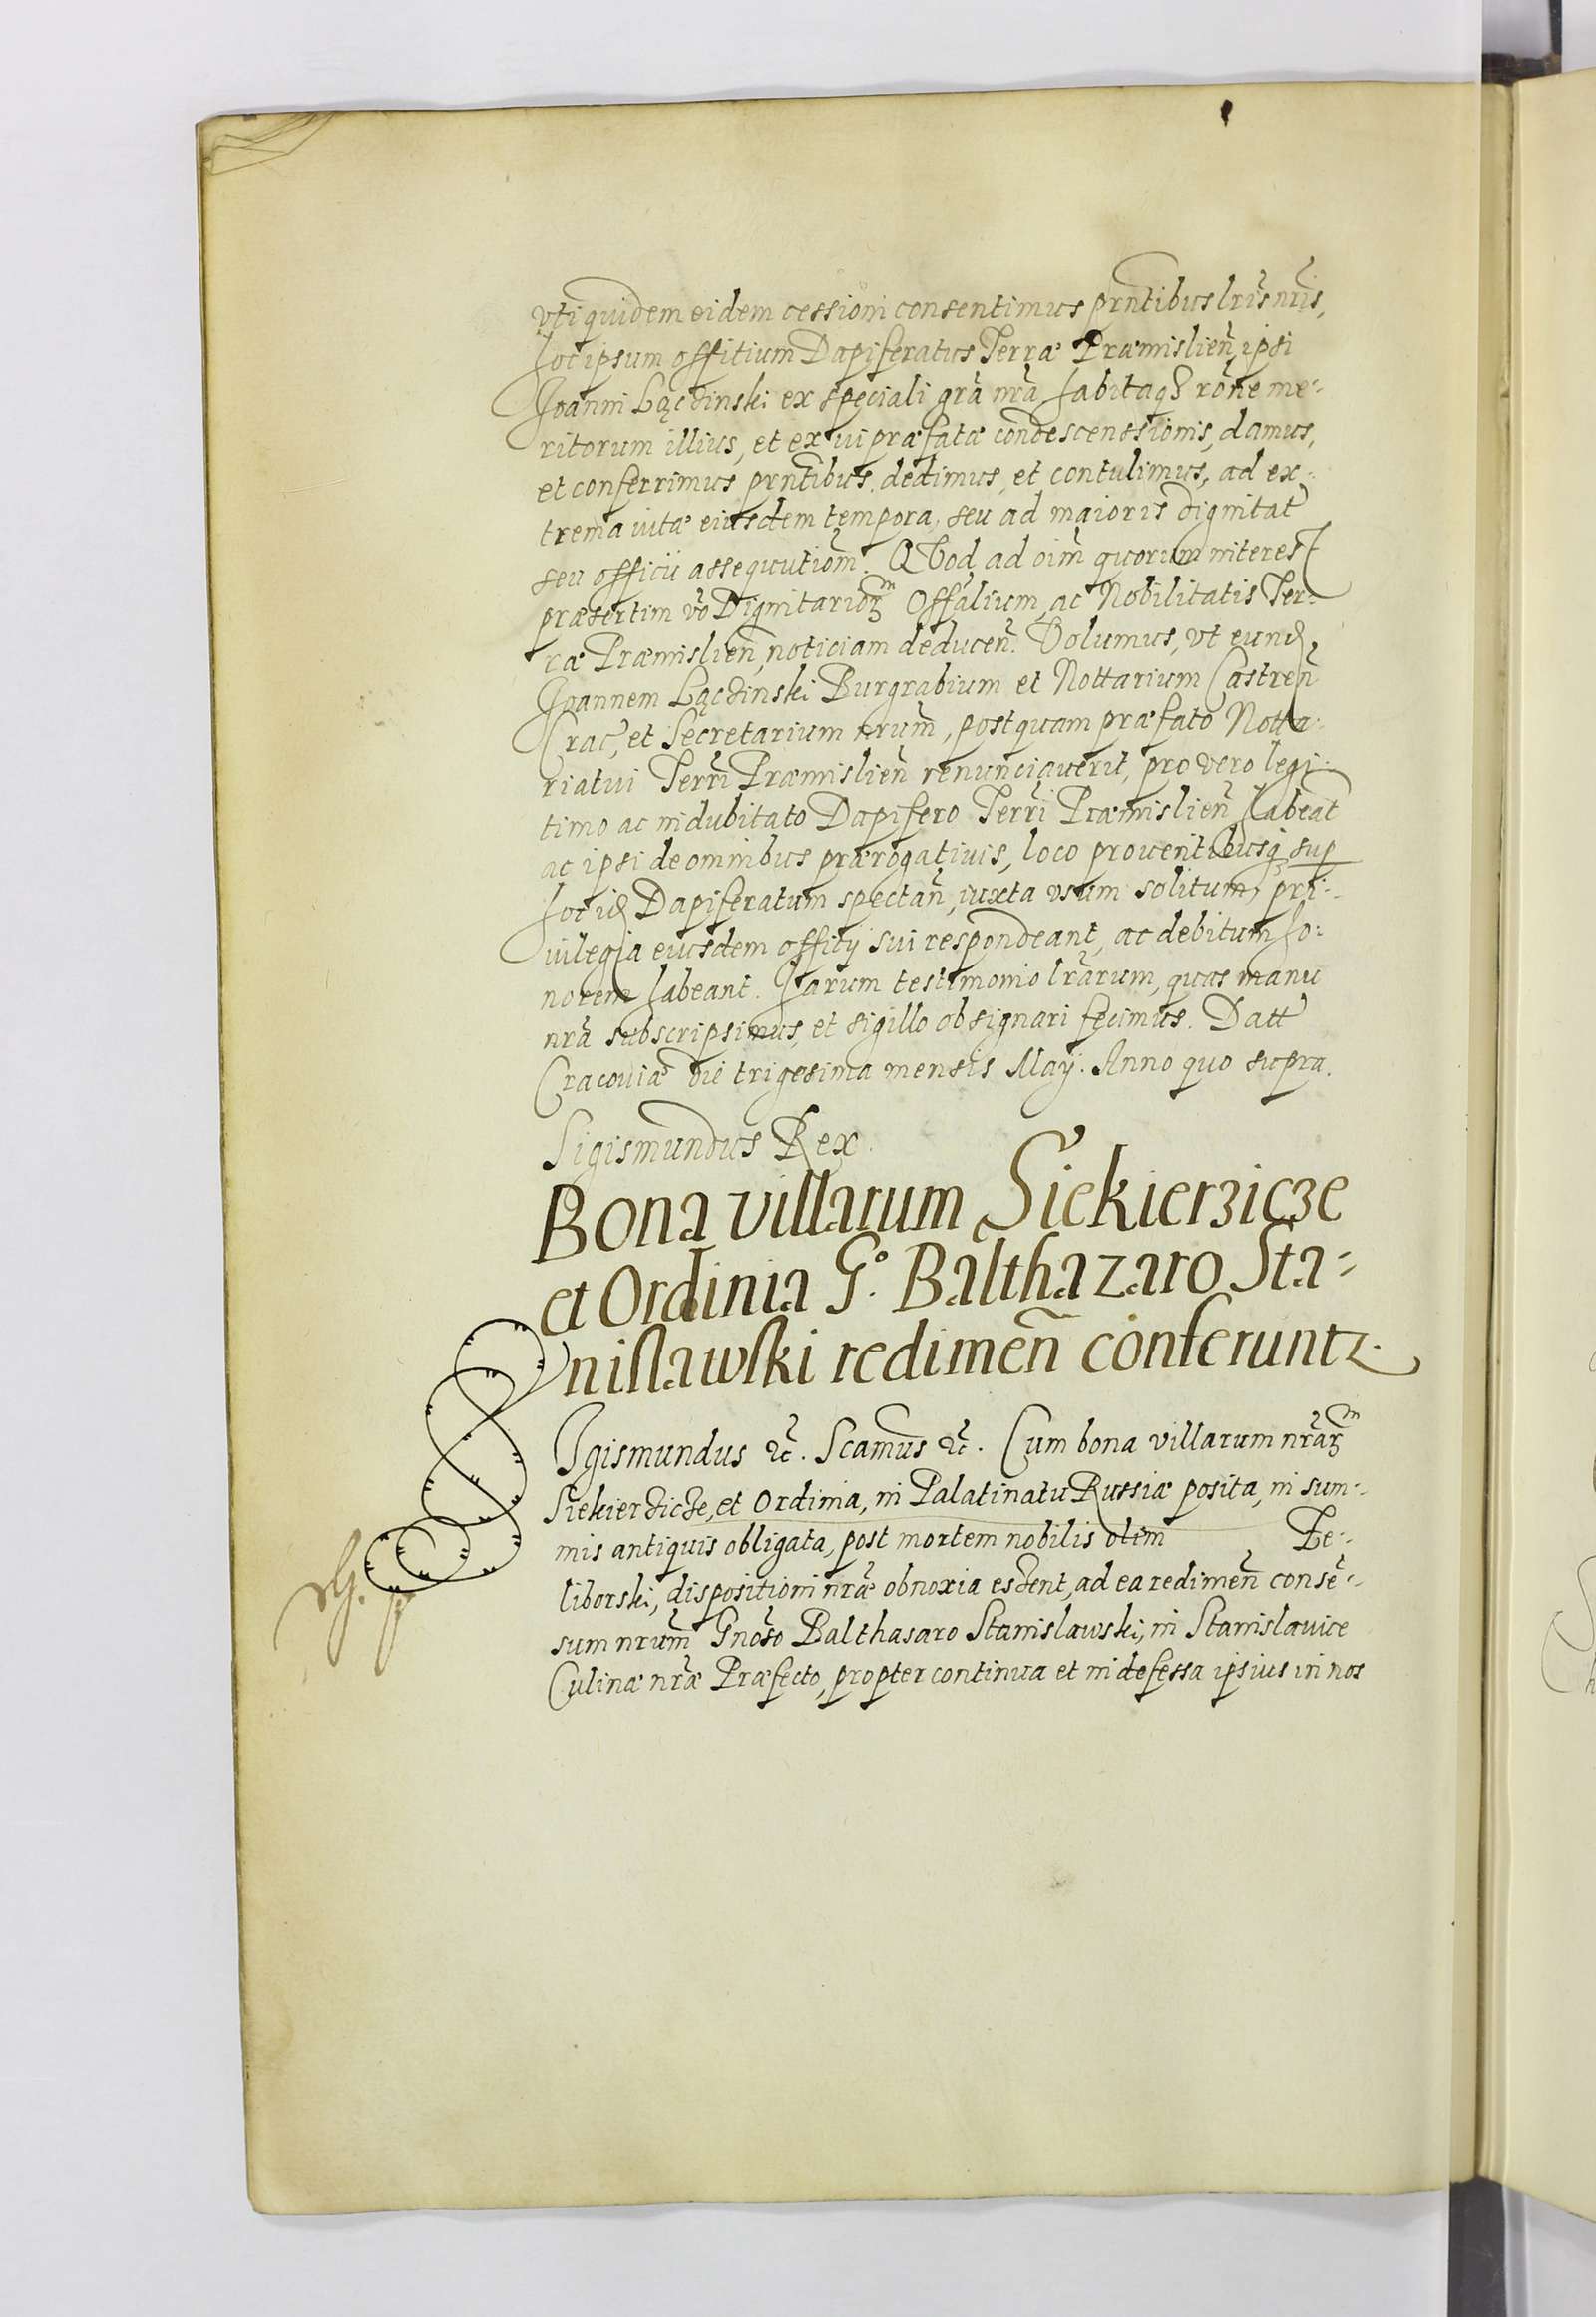 vti quidem eidem cessioni consentimus prntibus lris nris,
hoc ipsum offitium Dapiferatus Terræ Præmislien̄ ipsi
Joanni Łączinski ex speciali grā nrā habitaqȝ rōne me-
ritorum illius, et ex vi præfatæ condescenssionis, damus,
et conferrimus prntibus, dedimus, et contulimus, ad ex-
trema vitæ eiusdem tempora, seu ad maioris dignitat
seu officii assequutiom̄. QVod ad oīm quorum interest
præsertim vō Dignitarioꝝ Offālium, ac Nobilitatis Ter-
ræ Præmislien̄, noticiam deducen̄. Volumus, vt eund
Joannem Łączinski Burgrabium et Nottarium Castren̄
Crac̄, et Secretarium nrum̄, postquam præfato Notta-
riatui Terrī Præmislien̄ renunciauerit, pro vero legi-
timo ac indubitato Dapifero Terrī Præmislien̄ habeāt
ac ipsi de omnibus prærogatiuis, loco prouentibusq sup
hoc id Dapiferatum spectan̄, iuxta vsum solitum, pri-
uilegia eiusdem offity sui respondeant, ac debitum ho-
norem habeant. Harum testimonio lrārum, quas manu
nrā subscripsimus, et sigillo obsignari fecimus. Datt
Cracouiæ die trigesima mensis May. Anno quo supra.
Sigismundus Rex.
Bona villarum Siekierzicze
et Ordinia G.º Balthazaro Sta-
nislawski redimen̄ conferuntz.
SIgismundus &c̄. Scamus &c̄. Cum bona villarum nrāꝝ
Siekierzicze, et Ordinia, in Palatinatu Russiæ posita, in sum-
mis antiquis obligata, post mortem nobilis olim Ze-
liborski, dispositioni nrǣ obnoxia essent, ad ea redimen̄ consē-
sum nrum̄ Gnōso Balthasaro Stanislawski, in Stanislauice
Culinæ nrǣ Præfecto, propter continua et indefessa ipsius in nos